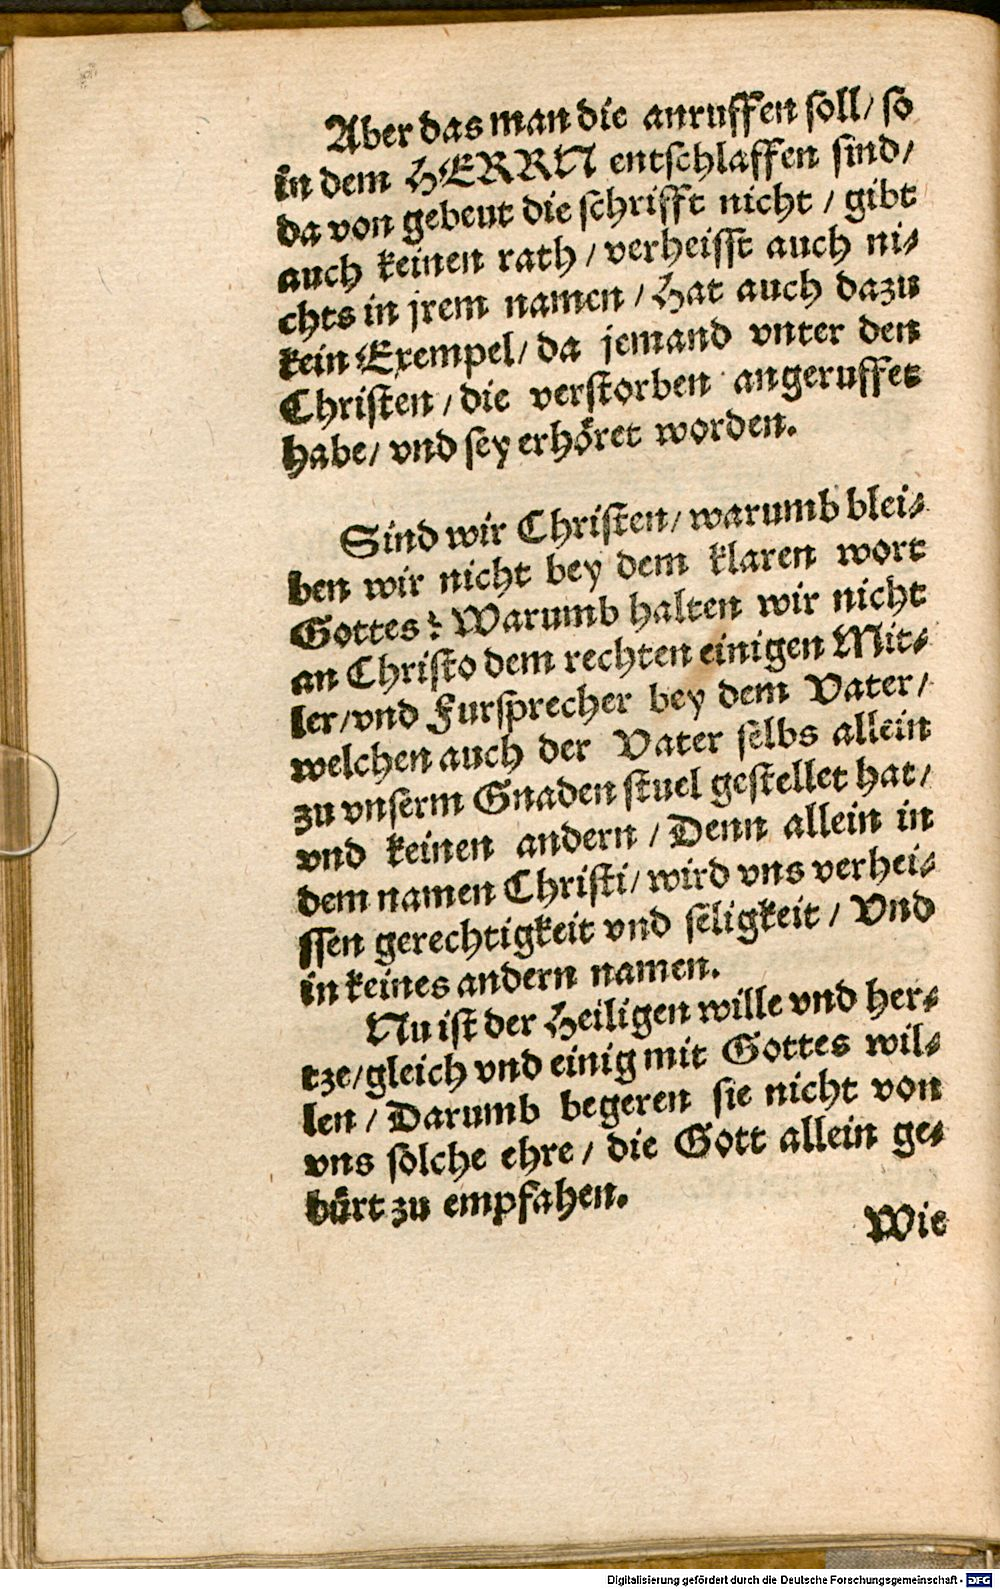 Aber das man die anruffen ſoll/ ſo
in dem HERRN entſchlaffen ſind/
da von gebeut die ſchrifft nicht / gibt
auch keinen rath / verheiſſt auch ni⸗
chts in jrem namen / Hat auch dazu
kein Exempel/ da jemand vnter den
Chriſten / die verſtorben angeruffet
habe/ vnd ſey erhöret worden.
Sind wir Chriſten/ warumb blei⸗
ben wir nicht bey dem klaren wort
Gottes? Warumb halten wir nicht
an Chriſto dem rechten einigen Mit⸗
ler/vnd Furſprecher bey dem Vater/
welchen auch der Vater ſelbs allein
zu vnſerm Gnaden ſtuel geſtellet hat/
vnd keinen andern / Denn allein in
dem namen Chriſti/ wird vns verhei⸗
ſſen gerechtigkeit vnd ſeligkeit / Vnd
in keines andern namen.
Nu iſt der Heiligen wille vnd her⸗
tze/gleich vnd einig mit Gottes wil⸗
len / Darumb begeren ſie nicht von
vns ſolche ehre / die Gott allein ge⸗
bürt zu empfahen.
Wie
Digitalisierung gefördert durch die Deutsche Forschungsgemeinschaft - DFG